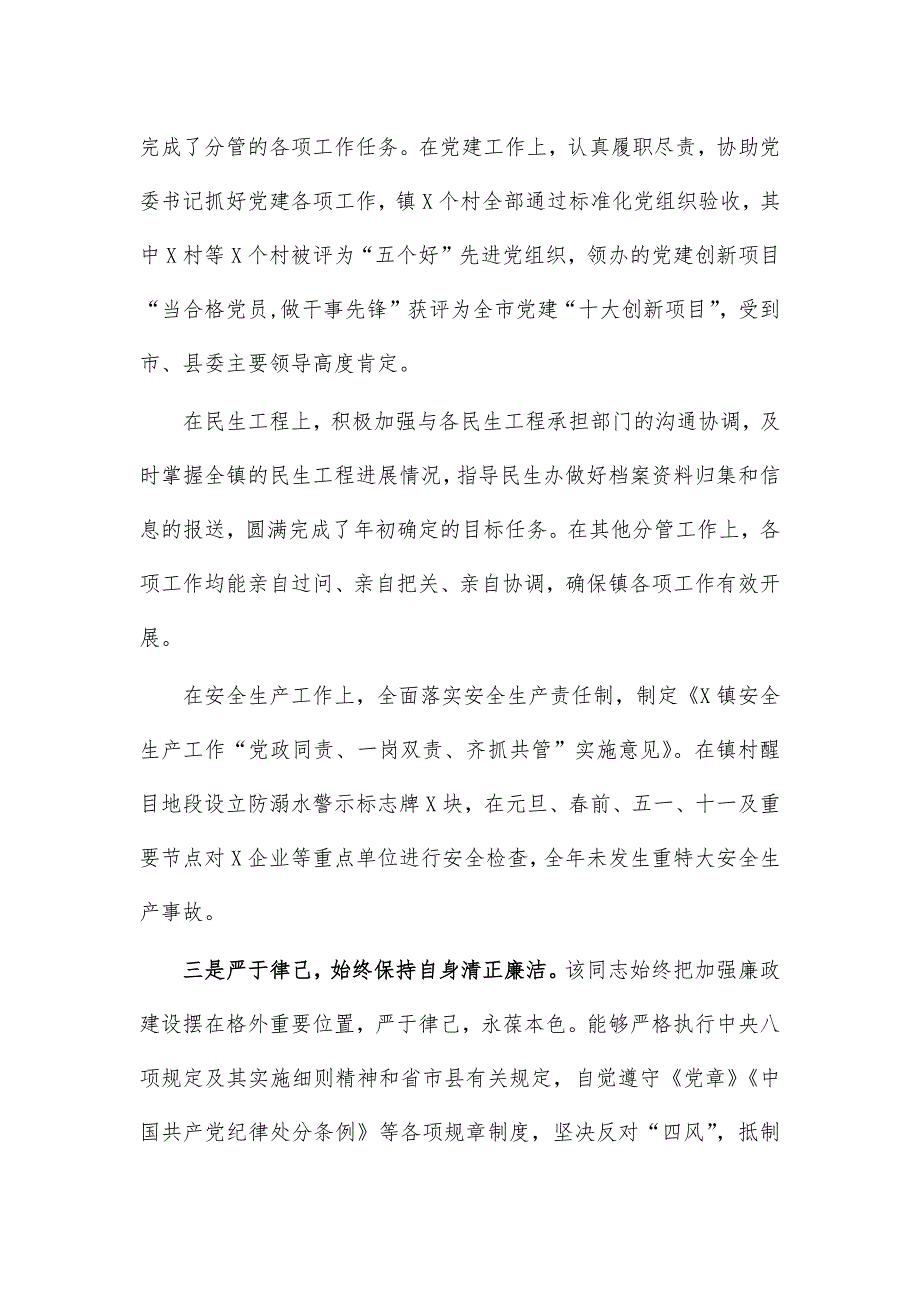 完成了分管的各项工作任务。在党建工作上，认真履职尽责，协助党
委书记抓好党建各项工作，镇X个村全部通过标准化党组织验收，其
中X村等X个村被评为“五个好”先进党组织，领办的党建创新项目
“当合格党员,做干事先锋”获评为全市党建“十大创新项目”，受到
市、县委主要领导高度肯定。
在民生工程上，积极加强与各民生工程承担部门的沟通协调，及
时掌握全镇的民生工程进展情况，指导民生办做好档案资料归集和信
息的报送，圆满完成了年初确定的目标任务。在其他分管工作上，各
项工作均能亲自过问、亲自把关、亲自协调，确保镇各项工作有效开
展。
在安全生产工作上，全面落实安全生产责任制，制定《X镇安全
生产工作“党政同责、一岗双责、齐抓共管”实施意见》。在镇村醒
目地段设立防溺水警示标志牌X块，在元旦、春前、五一、十一及重
要节点对X企业等重点单位进行安全检查，全年未发生重特大安全生
产事故。
三是严于律己，始终保持自身清正廉洁。该同志始终把加强廉政
建设摆在格外重要位置，严于律己，永葆本色。能够严格执行中央八
项规定及其实施细则精神和省市县有关规定，自觉遵守《党章》《中
国共产党纪律处分条例》等各项规章制度，坚决反对“四风”，抵制